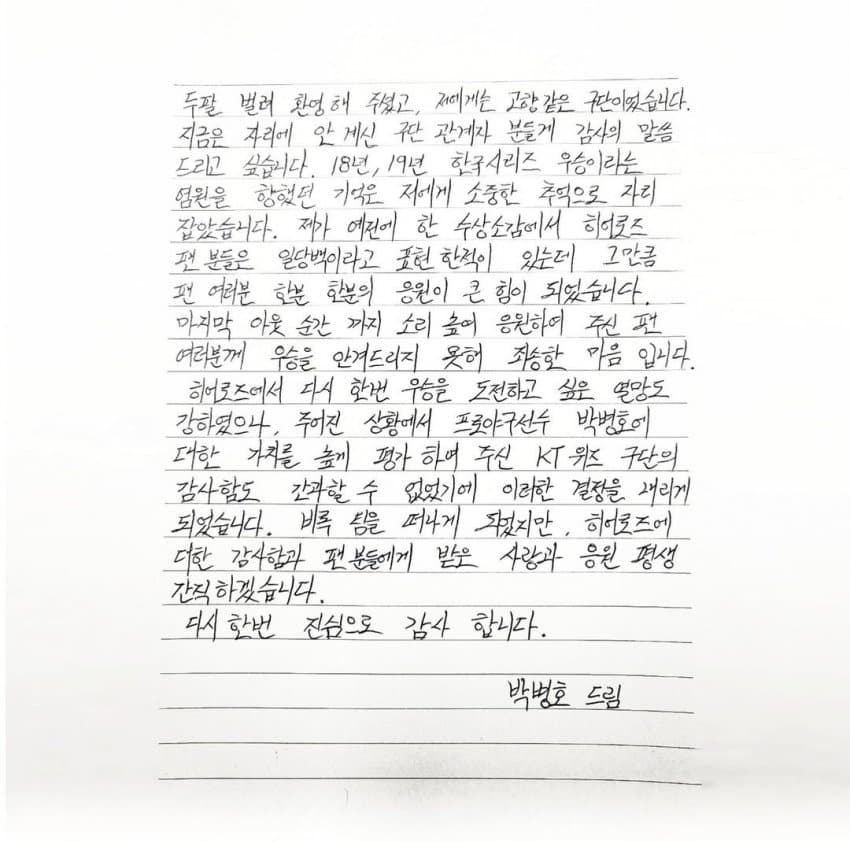 두팔 벌려 환영해 주셨고, 저에게는 고향같은 구단이었습니다.
지금은 자리에 안 계신 구단 관계자 분들게 감사의 말씀
드리고 싶습니다. 18년, 19년 한국시리즈 우승이라는
염원을 향했던 기억은 저에게 소중한 추억으로 자리
잡았습니다. 제가 예전에 한 수상소감에서 히어로즈
팬 분들은 일당백이라고 표현 한적이 있는데 그만큼
팬 여러분 한분 한분의 응원이 큰 힘이 되었습니다.
마지막 아웃 순간 까지 소리 높여 응원하여 주신 팬
여러분께 우승을 안겨드리지 못해 죄송한 마음 입니다.
히어로즈에서 다시 한번 우승을 도전하고 싶은 열망도
강하였으나, 주어진 상황에서 프로야구선수 박병호에
대한 가치를 높게 평가 하여 주신 KT 위즈 구단의
감사함도 간과할 수 없었기에 이러한 결정을 내리게
되었습니다. 비록 팀을 떠나게 되었지만, 히어로즈에
대한 감사함과 팬 분들에게 받은 사랑과 응원 평생
간직하겠습니다.
다시 한번 진심으로 감사 합니다.
박병호 드림